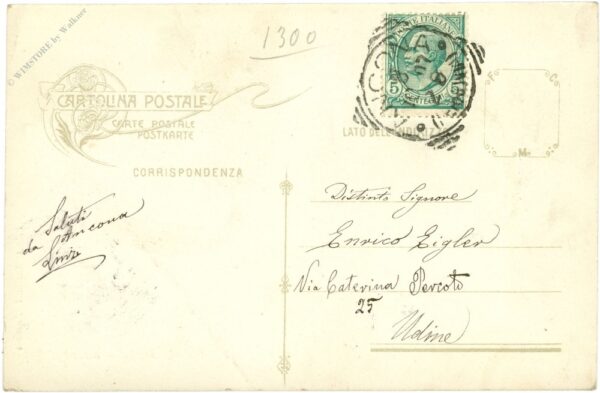 © WIMSTORE by Walkner
1300
CARTOLINA POSTALE
CARTE POSTALE
POSTKARTE
CORRISPONDENZA
POSTE ITALIANE
5
ANCONA
LATO DELL'INDIRIZZO
F C
M
Saluti
da Ancona
Distinto Signore
Enrico Eigler
Via Caterina Percoto
25
Udine